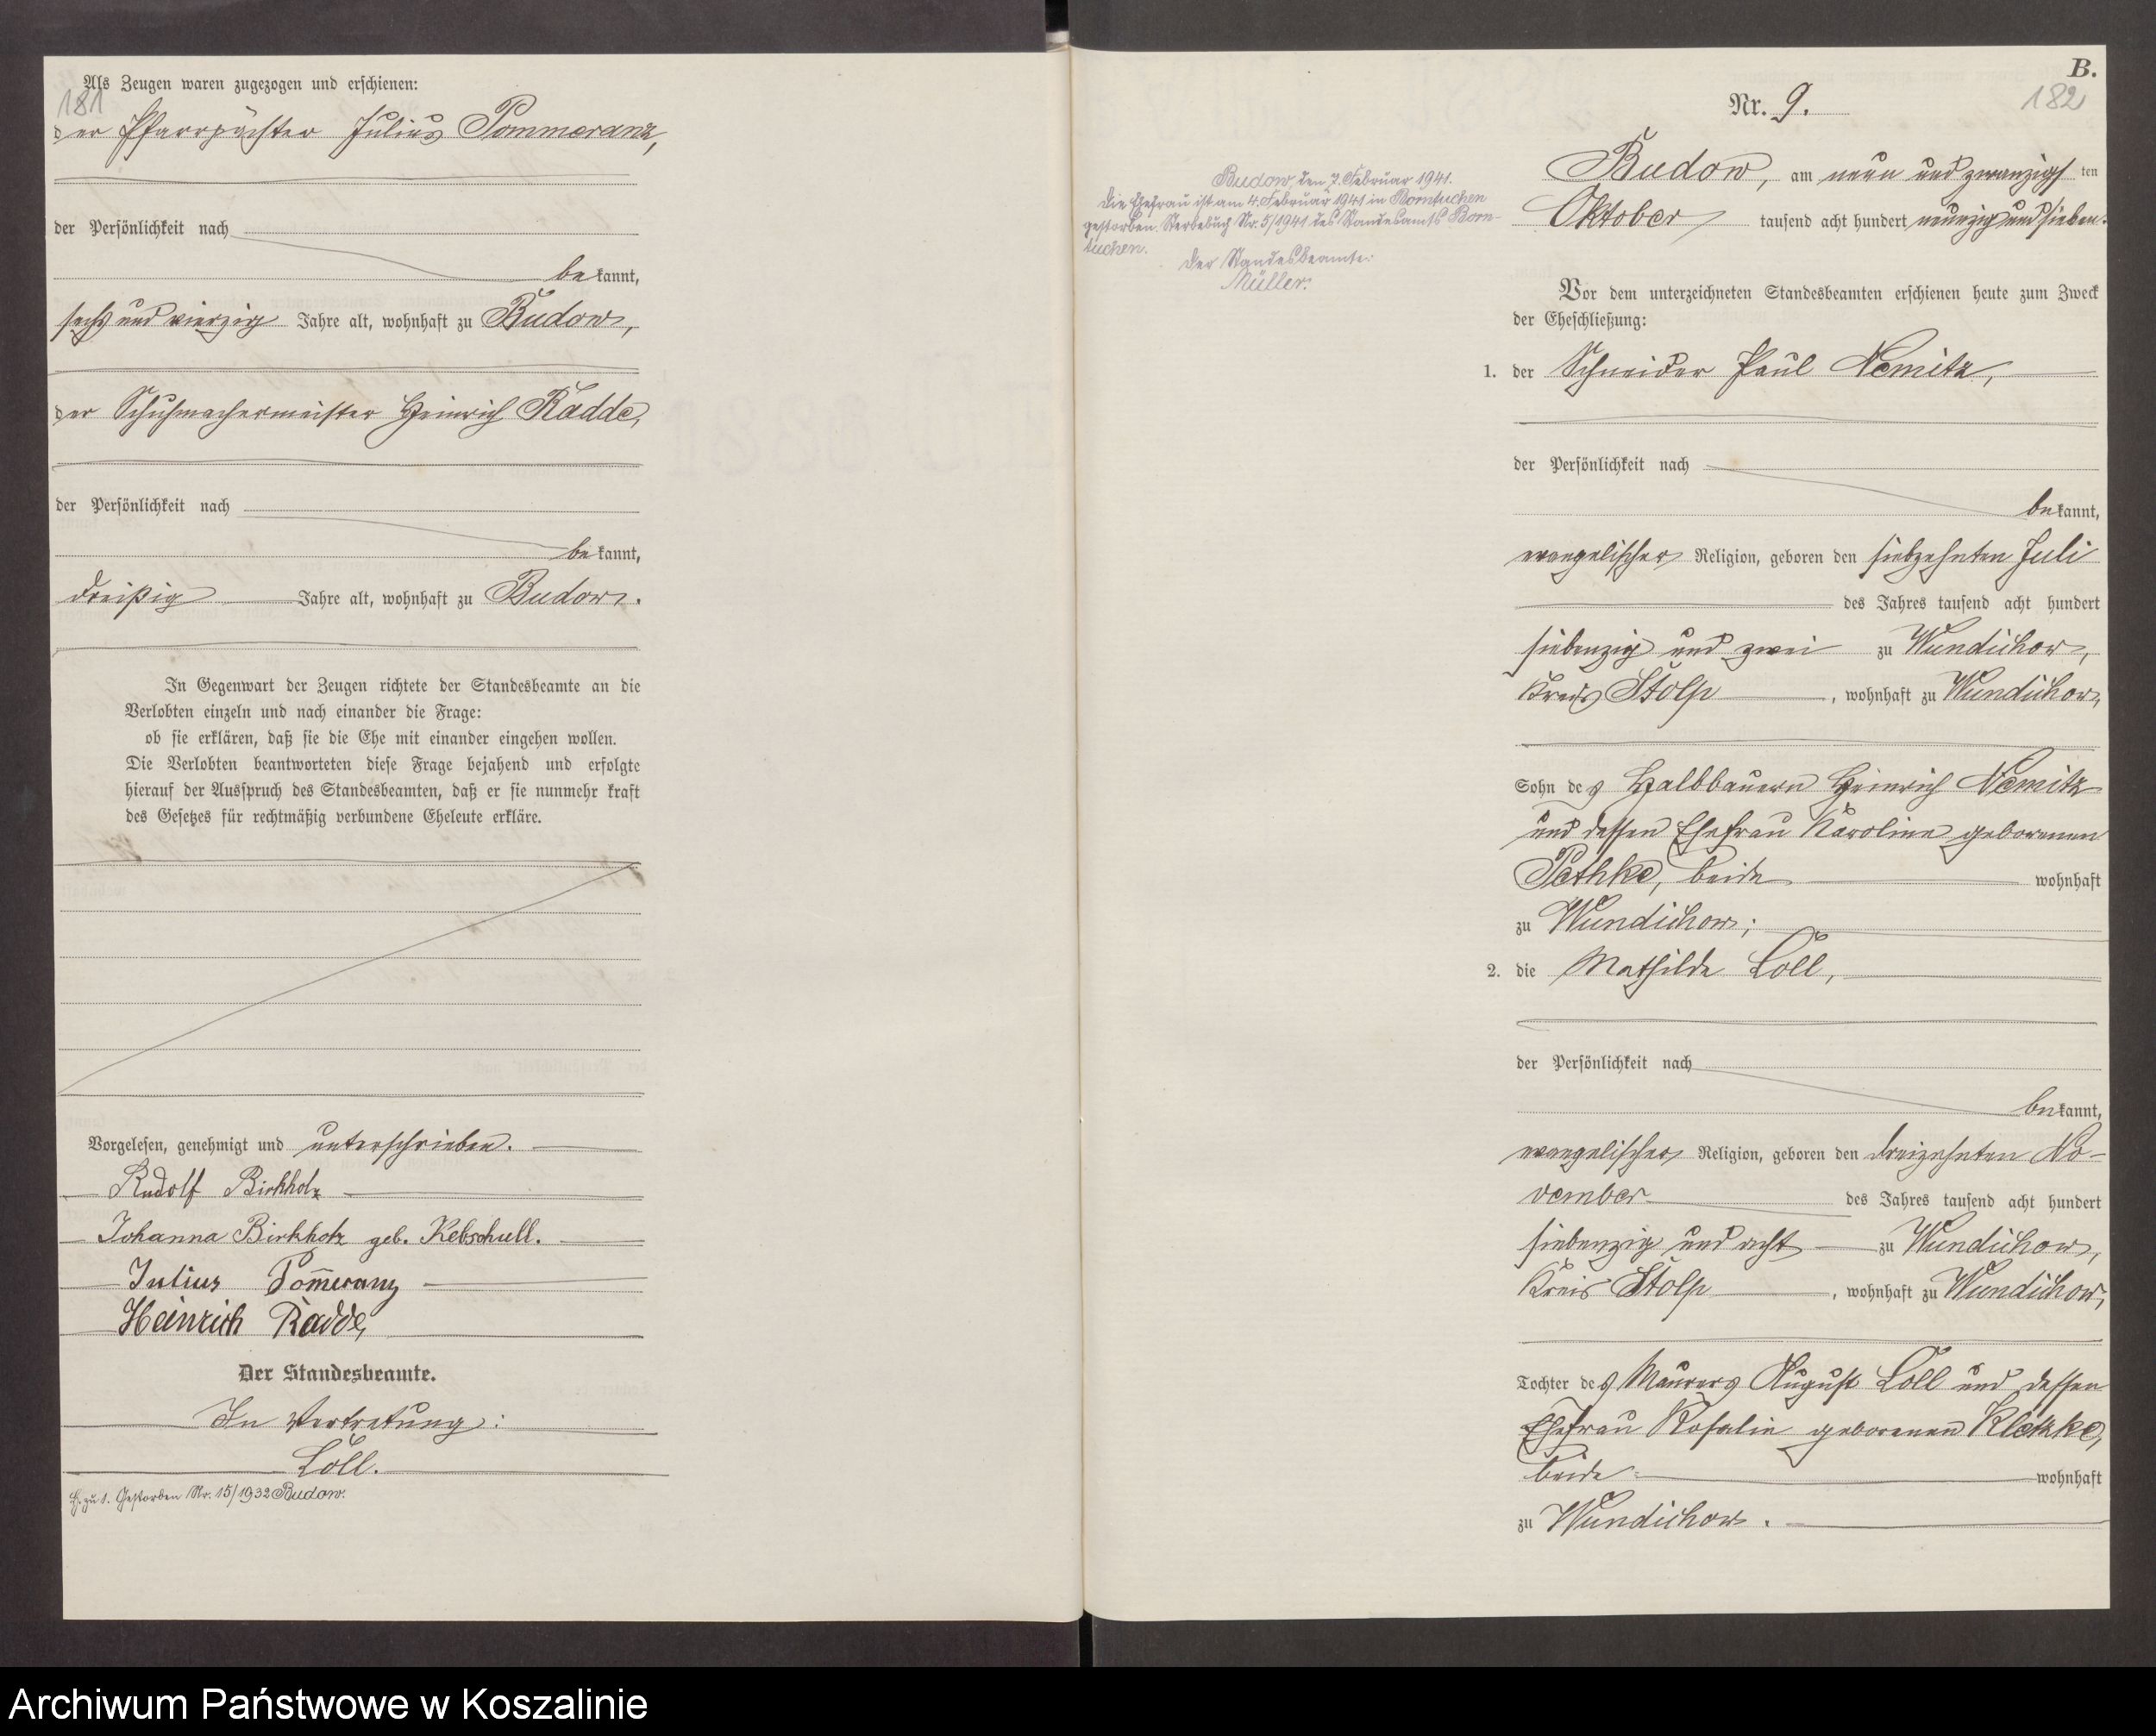 Als Zeugen waren zugezogen und erschienen:
181
der Pfarrpächter Julius Pommeranz,
der Persönlichkeit nach
bekannt,
sechs und vierzig Jahre alt, wohnhaft zu Budow,
der Schuhmachermeister Heinrich Radde,
der Persönlichkeit nach
bekannt,
dreißig Jahre alt, wohnhaft zu Budow.
In Gegenwart der Zeugen richtete der Standesbeamte an die
Verlobten einzeln und nach einander die Frage:
ob sie erklären, daß sie die Ehe mit einander eingehen wollen.
Die Verlobten beantworteten diese Frage bejahend und erfolgte
hierauf der Ausspruch des Standesbeamten, daß er sie nunmehr kraft
des Gesetzes für rechtmäßig verbundene Eheleute erkläre.
Vorgelesen, genehmigt und unterschrieben.
Rudolf Birkholz
Johanna Birkholz geb. Kebschull.
Julius Pom̄eranz
Heinrich Radde,
Der Standesbeamte.
In Vertretung:
Löll.
H. zu 1. Gestorben Nr. 15/1932 Budow.
B.
182
Nr. 9.
Budow, am neun und zwanzigsten
Oktober tausend acht hundert neunzig und sieben.
Budow, den 7. Februar 1941.
Die Ehefrau ist am 4. Februar 1941 in Borntuchen
gestorben. Sterbebuch Nr. 5/1941 des Standesamts Born-
tuchen.
Der Standesbeamte:
Müller.
Vor dem unterzeichneten Standesbeamten erschienen heute zum Zweck
der Eheschließung:
1. der Schneider Paul Nemitz,
der Persönlichkeit nach
bekannt,
evangelischer Religion, geboren den siebzehnten Juli
des Jahres tausend acht hundert
siebenzig und zwei zu Wundichow,
Kreis Stolp, wohnhaft zu Wundichow,
Sohn des Halbbauern Heinrich Nemitz
und dessen Ehefrau Karoline geborenen
Pethke, beide wohnhaft
zu Wundichow;
2. die Mathilde Löll,
der Persönlichkeit nach
bekannt,
evangelischer Religion, geboren den dreizehnten No-
vember des Jahres tausend acht hundert
siebenzig und acht zu Wundichow,
Kreis Stolp, wohnhaft zu Wundichow,
Tochter des Maurers August Löll und dessen
Ehefrau Rosalie geborenen Kletzke,
beide wohnhaft
zu Wundichow.
Archiwum Państwowe w Koszalinie